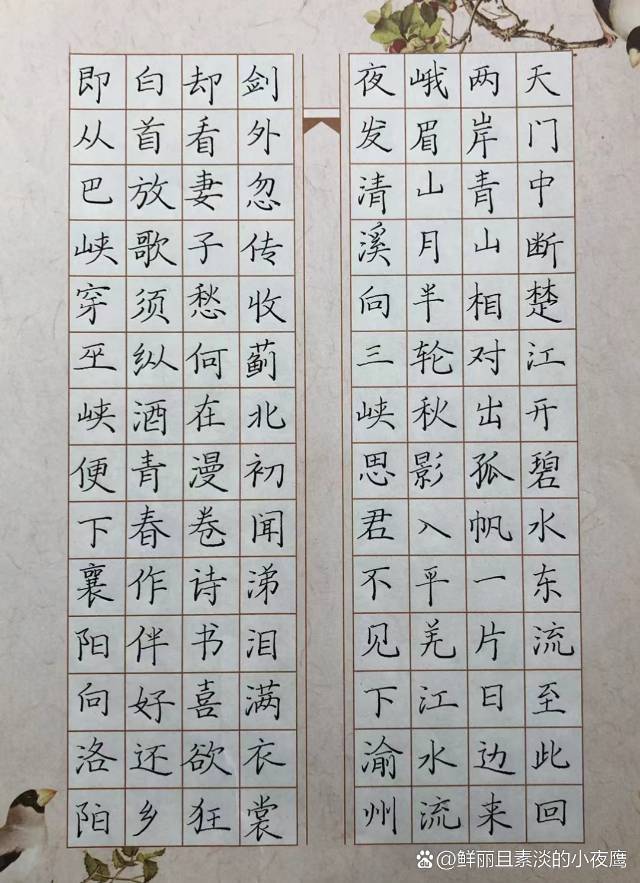 天门中断楚江开碧水东流至此回
两岸青山相对出孤帆一片日边来
峨眉山月半轮秋影入平羌江水流
夜发清溪向三峡思君不见下渝州
剑外忽传收蓟北初闻涕泪满衣裳
却看妻子愁何在漫卷诗书喜欲狂
白首放歌须纵酒青春作伴好还乡
即从巴峡穿巫峡便下襄阳向洛阳
@鲜丽且素淡的小夜鹰